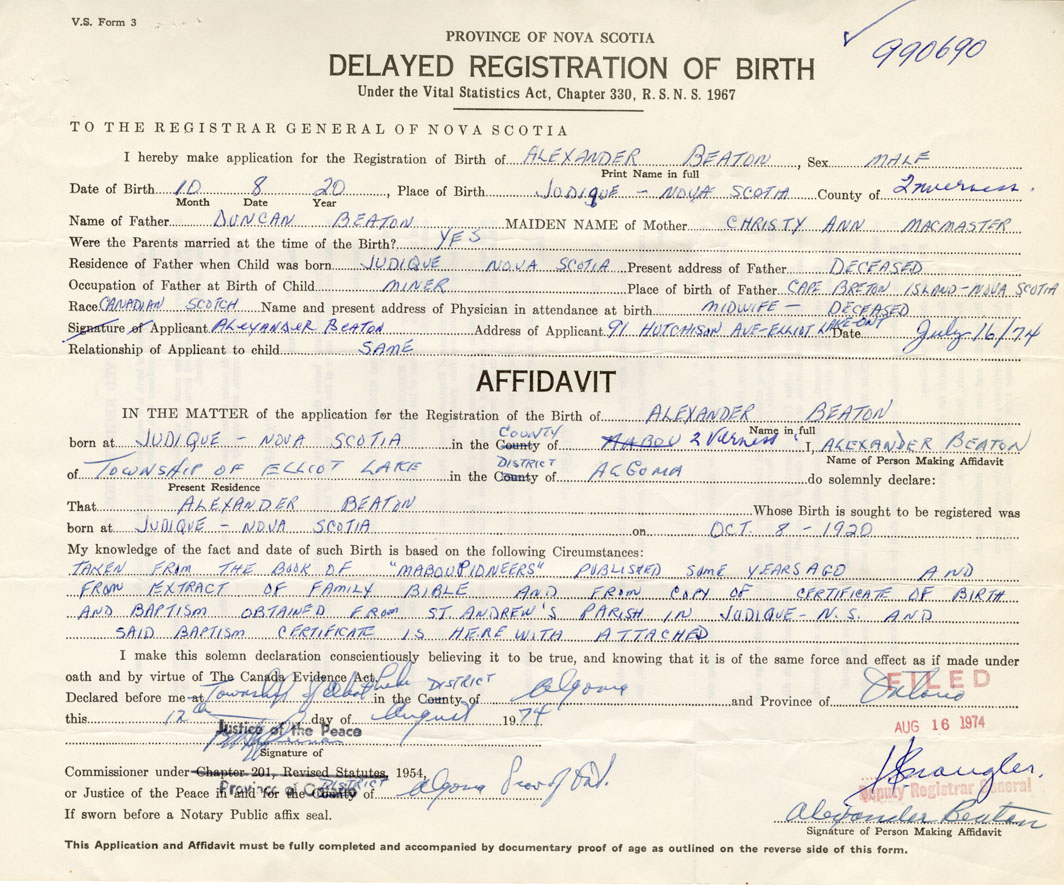 V.S. Form 3
990690
PROVINCE OF NOVA SCOTIA
DELAYED REGISTRATION OF BIRTH
Under the Vital Statistics Act, Chapter 330, R.S.N.S. 1967
TO THE REGISTRAR GENERAL OF NOVA SCOTIA
I hereby make application for the Registration of Birth of ALEXANDER BEATON, Sex MALE
Print Name in full
Date of Birth 10 8 20, Place of Birth JUDIQUE - NOVA SCOTIA County of Inverness.
Month Date Year
Name of Father DUNCAN BEATON MAIDEN NAME of Mother CHRISTY ANN MACMASTER
Were the Parents married at the time of the Birth? YES
Residence of Father when Child was born JUDIQUE NOVA SCOTIA Present address of Father DECEASED
Occupation of Father at Birth of Child MINER Place of birth of Father CAPE BRETON ISLAND - NOVA SCOTIA
Race CANADIAN SCOTCH Name and present address of Physician in attendance at birth MIDWIFE - DECEASED
Signature of Applicant ALEXANDER BEATON Address of Applicant 91 HUTCHISON AVE - ELLIOT LAKE - ONT Date July 16/74
Relationship of Applicant to child SAME
AFFIDAVIT
IN THE MATTER of the application for the Registration of the Birth of ALEXANDER BEATON
Name in full
born at JUDIQUE - NOVA SCOTIA in the County COUNTY of MABOU Inverness I, ALEXANDER BEATON
Name of Person Making Affidavit
of TOWNSHIP OF ELLIOT LAKE in the County DISTRICT of ALGOMA do solemnly declare:
Present Residence
That ALEXANDER BEATON Whose Birth is sought to be registered was
born at JUDIQUE - NOVA SCOTIA on OCT. 8 - 1920
My knowledge of the fact and date of such Birth is based on the following Circumstances:
TAKEN FROM THE BOOK OF "MABOU PIONEERS" PUBLISHED SOME YEARS AGO AND
FROM EXTRACT OF FAMILY BIBLE AND FROM COPY OF CERTIFICATE OF BIRTH
AND BAPTISM OBTAINED FROM ST. ANDREW'S PARISH IN JUDIQUE - N.S. AND
SAID BAPTISM CERTIFICATE IS HERE WITH ATTACHED
I make this solemn declaration conscientiously believing it to be true, and knowing that it is of the same force and effect as if made under
oath and by virtue of The Canada Evidence Act.
Declared before me at Township of Elliot Lake in the County DISTRICT of Algoma and Province of Ontario
FILED
this 12th day of August 1974
AUG 16 1974
Justice of the Peace
Signature of
Commissioner under Chapter 201, Revised Statutes, 1954,
Province of Ontario
or Justice of the Peace in and for the County DISTRICT of Algoma Prov of Ont.
Deputy Registrar General
If sworn before a Notary Public affix seal.
Alexander Beaton
Signature of Person Making Affidavit
This Application and Affidavit must be fully completed and accompanied by documentary proof of age as outlined on the reverse side of this form.